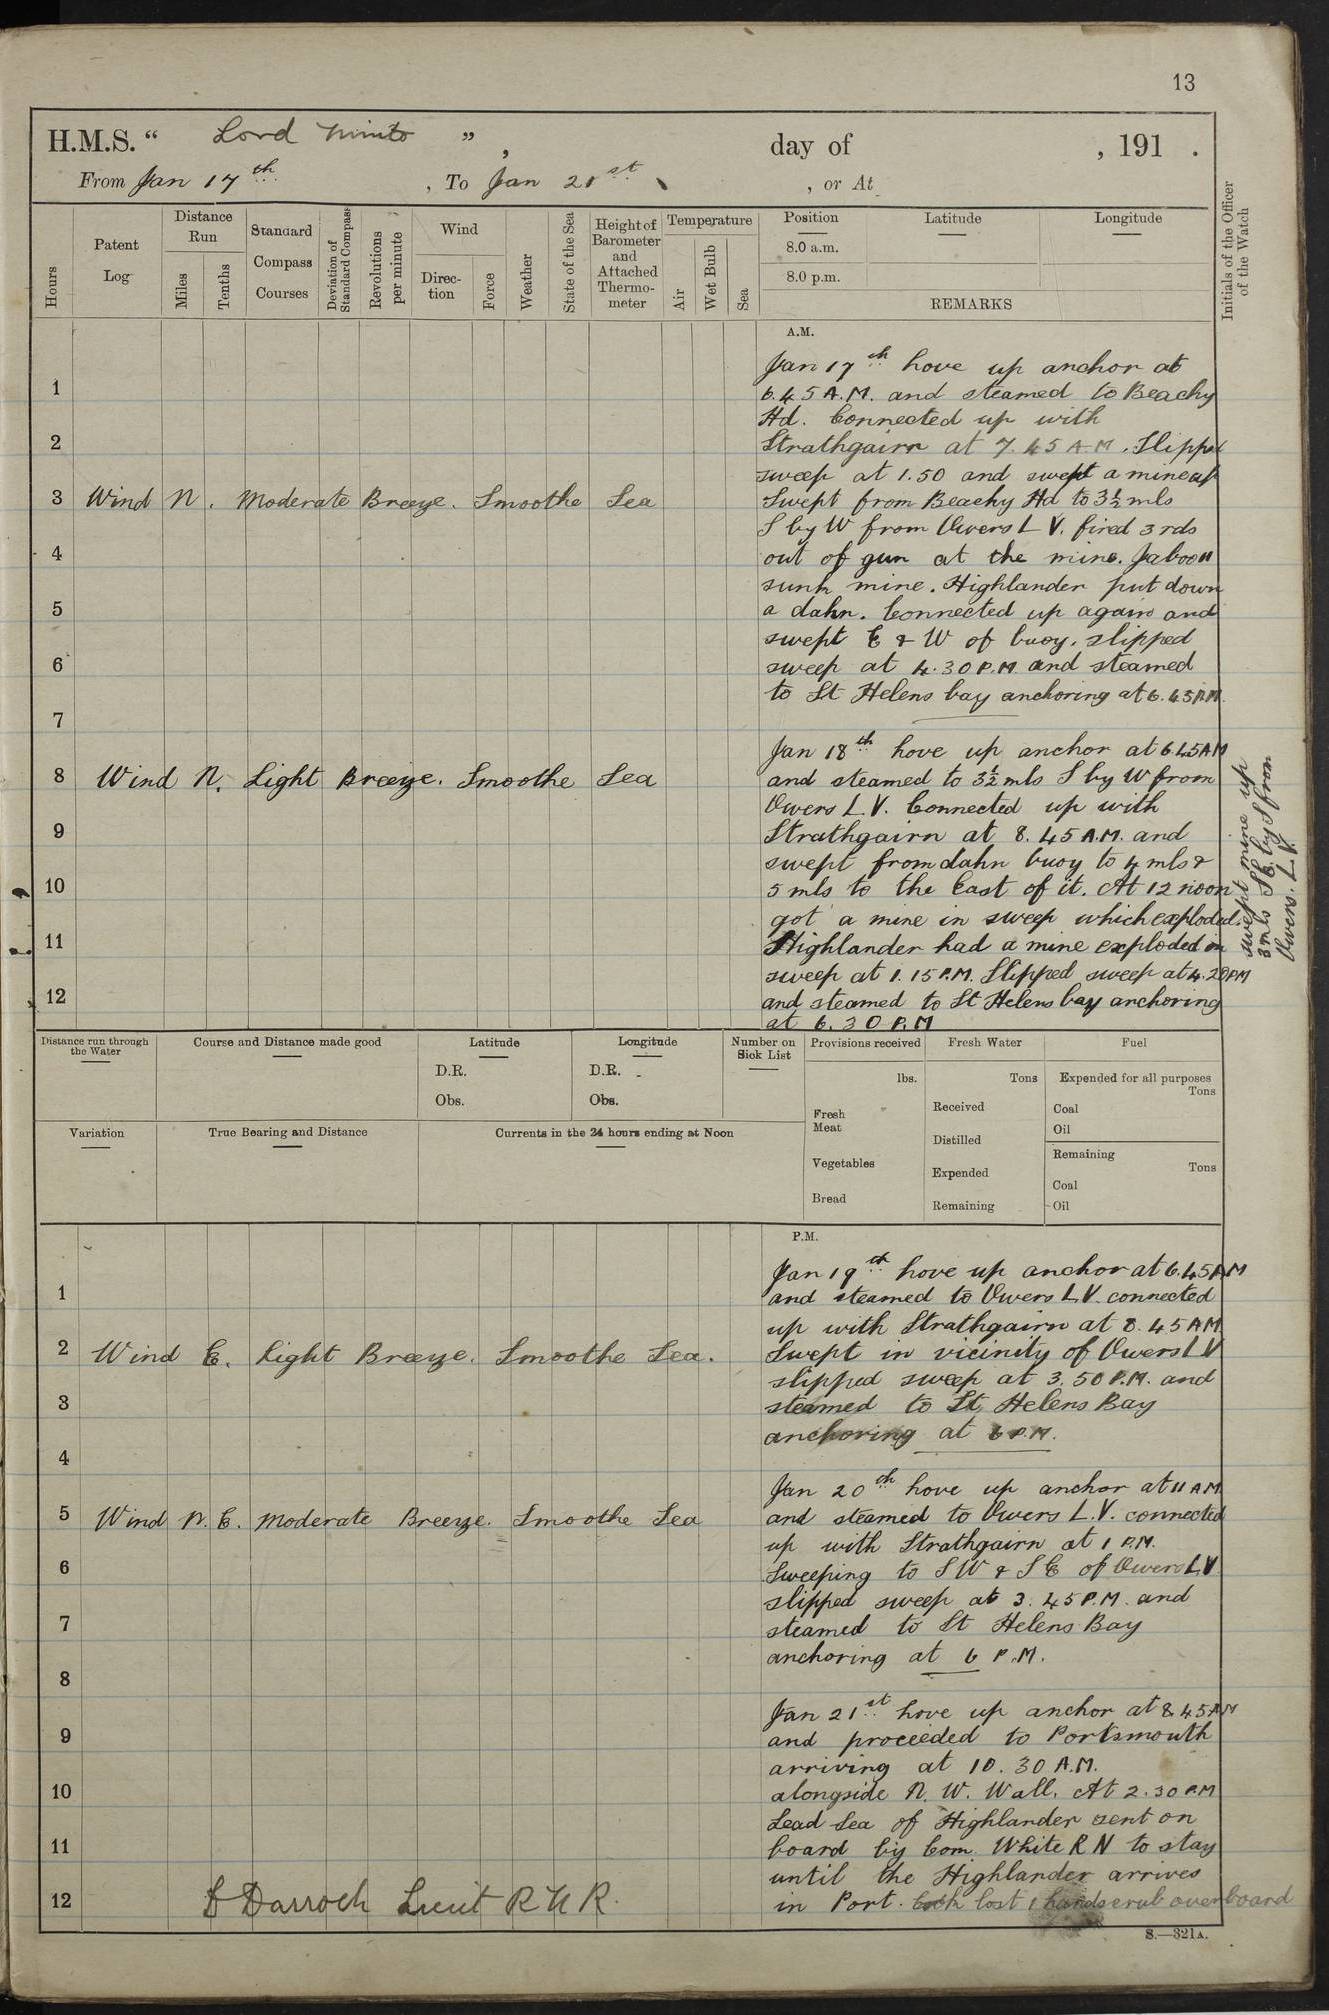 13
H.M.S. “ Lord Minto ”, day of , 191 .
From Jan 17th , To Jan 21st , or At
Hours
Patent Log
Distance Run
Miles
Tenths
Standard Compass Courses
Deviation of Standard Compass
Revolutions per minute
Wind
Direction
Force
Weather
State of the Sea
Height of Barometer and Attached Thermometer
Temperature
Air
Wet Bulb
Sea
Position
Latitude
Longitude
8.0 a.m.
8.0 p.m.
REMARKS
Initials of the Officer of the Watch
A.M.
Jan 17th hove up anchor at
1
6.45 A.M. and steamed to Beachy
Hd. Connected up with
2
Strathgairn at 7.45 A.M. Slipped
sweep at 1.50 and swept a mine up
3 Wind N. Moderate Breeze. Smoothe Sea
Swept from Beachy Hd to 3½ mls
S by W from Owers L V. fired 3 rds
4
out of gun at the mine.
sunk mine. Highlander put down
5
a dahn. Connected up again and
swept E & W of buoy. slipped
6
sweep at 4.30 P.M. and steamed
to St Helens bay anchoring at 6.45 P.M.
7
Jan 18th hove up anchor at 6.45 AM
8 Wind N. Light Breeze. Smoothe Sea
and steamed to 3½ mls S by W from
Owers L.V. Connected up with
9
Strathgairn at 8.45 A.M. and
swept from dahn buoy to 4 mls &
10
5 mls to the East of it. At 12 noon
got a mine in sweep which exploded.
11
Highlander had a mine exploded in
sweep at 1.15 P.M. Slipped sweep at 4.20 PM
12
and steamed to St Helens bay anchoring
at 6.30 P.M
swept mine up
3 mls SE by S from
Owers. L.V.
Distance run through the Water
Course and Distance made good
Latitude
D.R.
Obs.
Longitude
D.R.
Obs.
Number on Sick List
Provisions received
lbs.
Fresh Meat
Vegetables
Bread
Fresh Water
Tons
Received
Distilled
Expended
Remaining
Fuel
Expended for all purposes
Tons
Coal
Oil
Remaining
Tons
Coal
Oil
Variation
True Bearing and Distance
Currents in the 24 hours ending at Noon
P.M.
Jan 19th hove up anchor at 6.45 AM
1
and steamed to Owers L.V. connected
up with Strathgairn at 8.45 AM
2 Wind E. Light Breeze. Smoothe Sea.
Swept in vicinity of Owers L V
slipped sweep at 3.50 P.M. and
3
steamed to St Helens Bay
anchoring at 6 P.M.
4
Jan 20th hove up anchor at 11 AM
5 Wind N.E. Moderate Breeze. Smoothe Sea
and steamed to Owers L.V. connected
up with Strathgairn at 1 P.M.
6
Sweeping to SW & SE of Owers L.V
slipped sweep at 3.45 P.M. and
7
steamed to St Helens Bay
anchoring at 6 P.M.
8
Jan 21st hove up anchor at 8.45 AM
9
and proceeded to Portsmouth
arriving at 10.30 A.M.
10
alongside N.W. Wall. At 2.30 P.M
Lead Sea of Highlander sent on
11
board by Com. White R N to stay
until the Highlander arrives
12
in Port. lost 1 handscrub overboard
D Darroch Lieut R N R.
S.—321A.